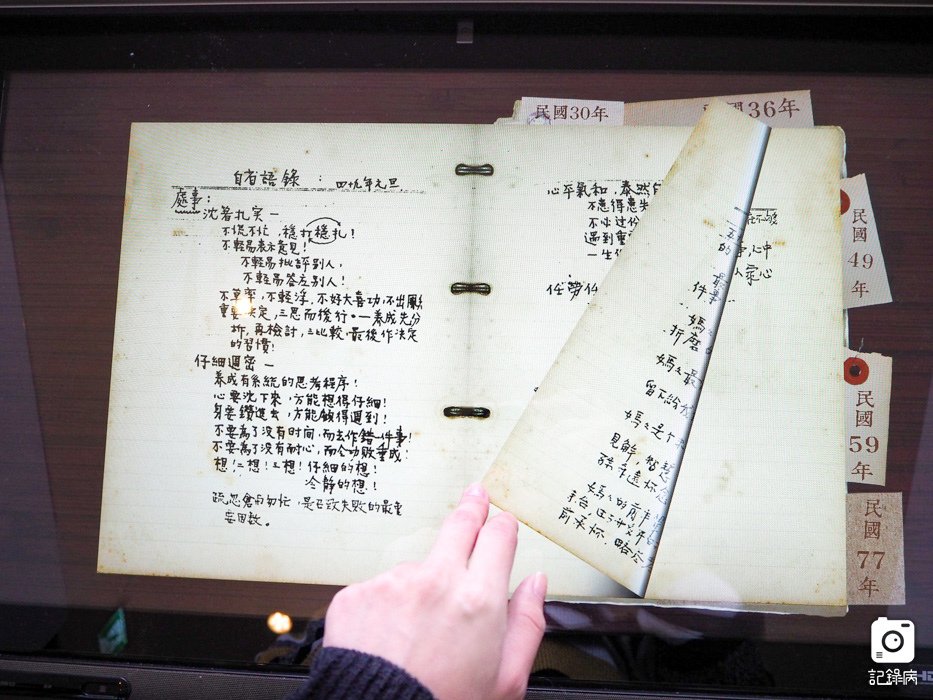 民國30年
國36年
自省語錄： 四九年元旦
處事：
沈著扎实—
不慌不忙，穩打穩扎！
不輕易表示意見！
不輕易批評别人，
不輕易答应别人！
不草率，不輕浮，不好大喜功，不出風
重要决定，三思而後行。—養成先分
析，再檢討，三比較，最後作决定
的習慣！
仔細週密—
養成有系統的思考程序！
心要沈下來，方能想得仔細！
身要鑽進去，方能做得週到！
不要為了没有时间，而去作錯一件事！
不要為了没有耐心，而令功敗垂成！
想！二想！三想！仔細的想！
冷静的想！
疏忽會与匆忙，是召致失敗的最重
要因數。
心平氣和，泰然
不患得患失
不必过份
遇到重
一生
任勞任
心中
最
件事
媽
折磨
媽媽最
留下給
媽媽是个
見解，智慧
永遠
媽媽的前半
平台，
前承
民國49年
民國59年
民國77年
記錄病